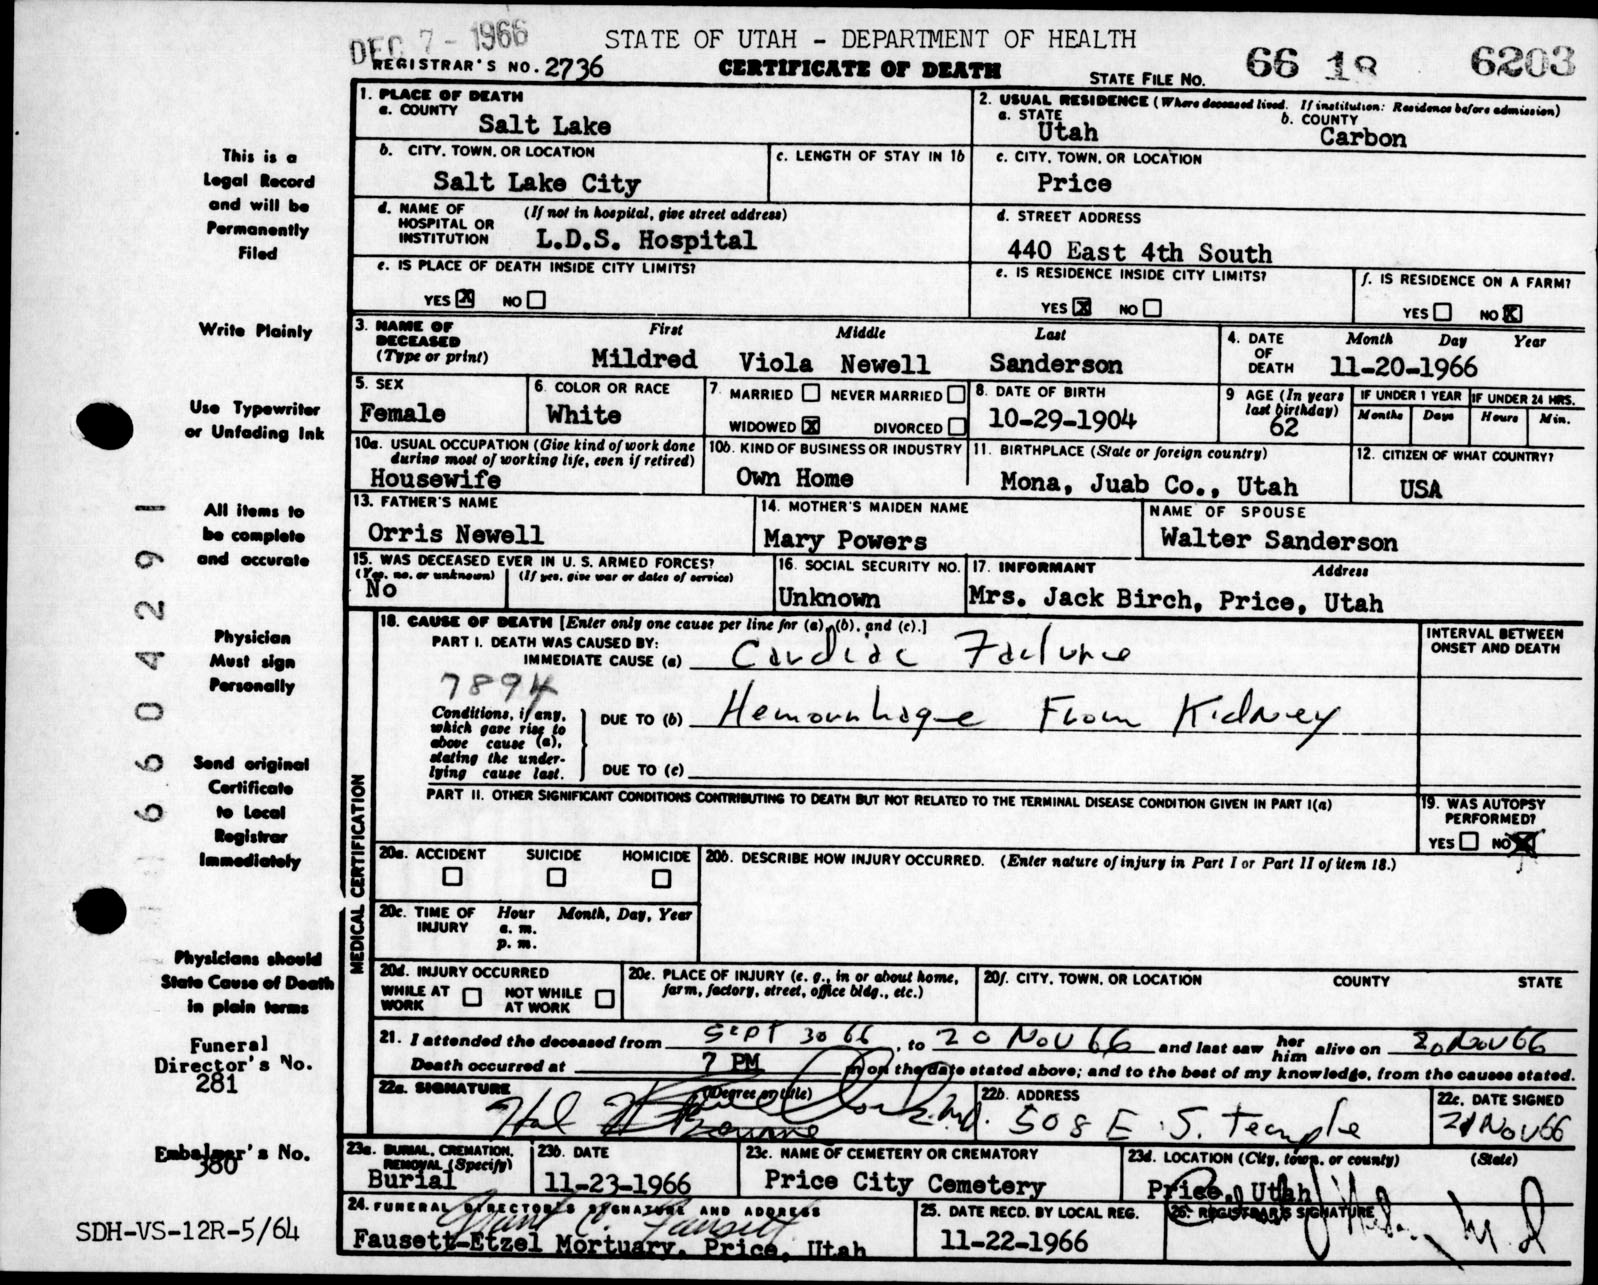 DEC 7 - 1966
STATE OF UTAH - DEPARTMENT OF HEALTH
REGISTRAR'S NO. 2736
CERTIFICATE OF DEATH
STATE FILE NO. 66 18 6203
1. PLACE OF DEATH
a. COUNTY
Salt Lake
2. USUAL RESIDENCE (Where deceased lived. If institution: Residence before admission)
a. STATE
Utah
b. COUNTY
Carbon
b. CITY, TOWN, OR LOCATION
Salt Lake City
c. LENGTH OF STAY IN 1b
c. CITY, TOWN, OR LOCATION
Price
d. NAME OF HOSPITAL OR INSTITUTION
(If not in hospital, give street address)
L.D.S. Hospital
d. STREET ADDRESS
440 East 4th South
e. IS PLACE OF DEATH INSIDE CITY LIMITS?
YES X NO
e. IS RESIDENCE INSIDE CITY LIMITS?
YES X NO
f. IS RESIDENCE ON A FARM?
YES NO X
3. NAME OF DECEASED (Type or print)
First Middle Last
Mildred Viola Newell Sanderson
4. DATE OF DEATH
Month Day Year
11-20-1966
5. SEX
Female
6. COLOR OR RACE
White
7. MARRIED NEVER MARRIED
WIDOWED X DIVORCED
8. DATE OF BIRTH
10-29-1904
9 AGE (In years last birthday)
62
IF UNDER 1 YEAR
Months Days
IF UNDER 24 HRS.
Hours Min.
10a. USUAL OCCUPATION (Give kind of work done during most of working life, even if retired)
Housewife
10b. KIND OF BUSINESS OR INDUSTRY
Own Home
11. BIRTHPLACE (State or foreign country)
Mona, Juab Co., Utah
12. CITIZEN OF WHAT COUNTRY?
USA
13. FATHER'S NAME
Orris Newell
14. MOTHER'S MAIDEN NAME
Mary Powers
NAME OF SPOUSE
Walter Sanderson
15. WAS DECEASED EVER IN U. S. ARMED FORCES?
(Yes, no, or unknown) (If yes, give war or dates of service)
No
16. SOCIAL SECURITY NO.
Unknown
17. INFORMANT Address
Mrs. Jack Birch, Price, Utah
MEDICAL CERTIFICATION
18. CAUSE OF DEATH [Enter only one cause per line for (a), (b), and (c).]
PART I. DEATH WAS CAUSED BY:
IMMEDIATE CAUSE (a) Cardiac Failure
INTERVAL BETWEEN ONSET AND DEATH
7894
Conditions, if any, which gave rise to above cause (a), stating the underlying cause last.
DUE TO (b) Hemorrhage From Kidney
DUE TO (c)
PART II. OTHER SIGNIFICANT CONDITIONS CONTRIBUTING TO DEATH BUT NOT RELATED TO THE TERMINAL DISEASE CONDITION GIVEN IN PART I(a)
19. WAS AUTOPSY PERFORMED?
YES NO X
20a. ACCIDENT SUICIDE HOMICIDE
20b. DESCRIBE HOW INJURY OCCURRED. (Enter nature of injury in Part I or Part II of item 18.)
20c. TIME OF INJURY
Hour Month, Day, Year
a. m.
p. m.
20d. INJURY OCCURRED
WHILE AT WORK NOT WHILE AT WORK
20e. PLACE OF INJURY (e. g., in or about home, farm, factory, street, office bldg., etc.)
20f. CITY, TOWN, OR LOCATION COUNTY STATE
21. I attended the deceased from SEPT 30 66, to 20 NOV 66 and last saw her him alive on 20 NOV 66
Death occurred at 7 PM m on the date stated above; and to the best of my knowledge, from the causes stated.
22a. SIGNATURE (Degree or title)
Hal Bourne M.D.
22b. ADDRESS
508 E. S. Temple
22c. DATE SIGNED
21 NOV 66
23a. BURIAL, CREMATION, REMOVAL (Specify)
Burial
23b. DATE
11-23-1966
23c. NAME OF CEMETERY OR CREMATORY
Price City Cemetery
23d. LOCATION (City, town, or county) (State)
Price, Utah
24. FUNERAL DIRECTOR'S SIGNATURE AND ADDRESS
Fausett
Fausett-Etzel Mortuary, Price, Utah
25. DATE RECD. BY LOCAL REG.
11-22-1966
26. REGISTRAR'S SIGNATURE
M.D
This is a
Legal Record
and will be
Permanently
Filed
Write Plainly
Use Typewriter
or Unfading Ink
All items to
be complete
and accurate
Physician
Must sign
Personally
Send original
Certificate
to Local
Registrar
Immediately
Physicians should
State Cause of Death
in plain terms
Funeral
Director's No.
281
Embalmer's No.
380
SDH-VS-12R-5/64
66 04291